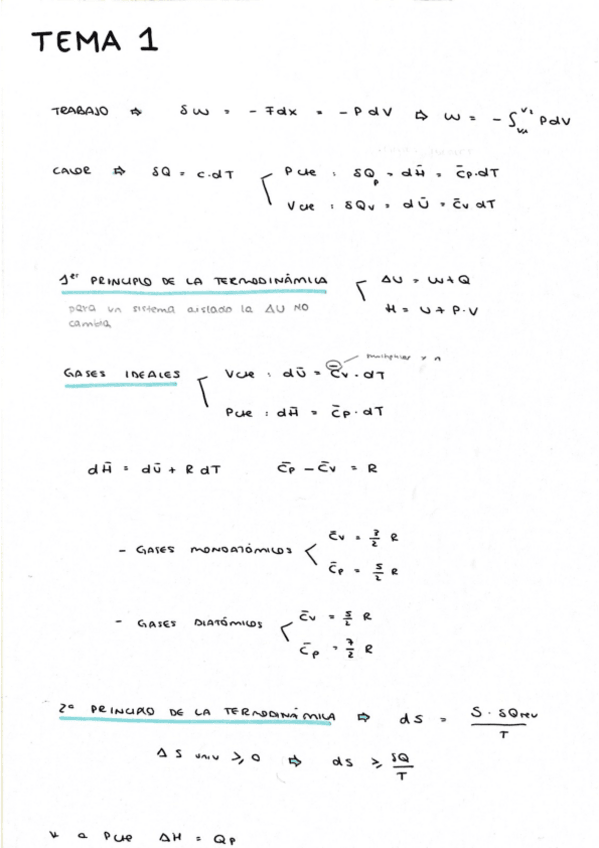 TEMA 1
TRABAJO ⇨ δW = - Fdx = - P dV ⇨ W = - ∫_{V1}^{V2} PdV
CALOR ⇨ δQ = C.dT
Pcte : δQp = dH̄ = C̄p.dT
Vcte : δQv = dŪ = C̄v dT
1er PRINCIPIO DE LA TERMODINÁMICA
ΔU = W+Q
H = U + P.V
para un sistema aislado la ΔU NO
cambia
GASES IDEALES
Vcte : dŪ = C̄v . dT
multiplicar x n
Pcte : dH̄ = C̄p . dT
dH̄ = dŪ + R dT C̄p - C̄v = R
- GASES MONOATÓMICOS
C̄v = 3/2 R
C̄p = 5/2 R
- GASES DIATÓMICOS
C̄v = 5/2 R
C̄p = 7/2 R
2º PRINCIPIO DE LA TERMODINÁMICA ⇨ dS = S . δQrev / T
ΔS univ ≥ 0 ⇨ dS ≥ δQ/T
a Pcte ΔH = Qp